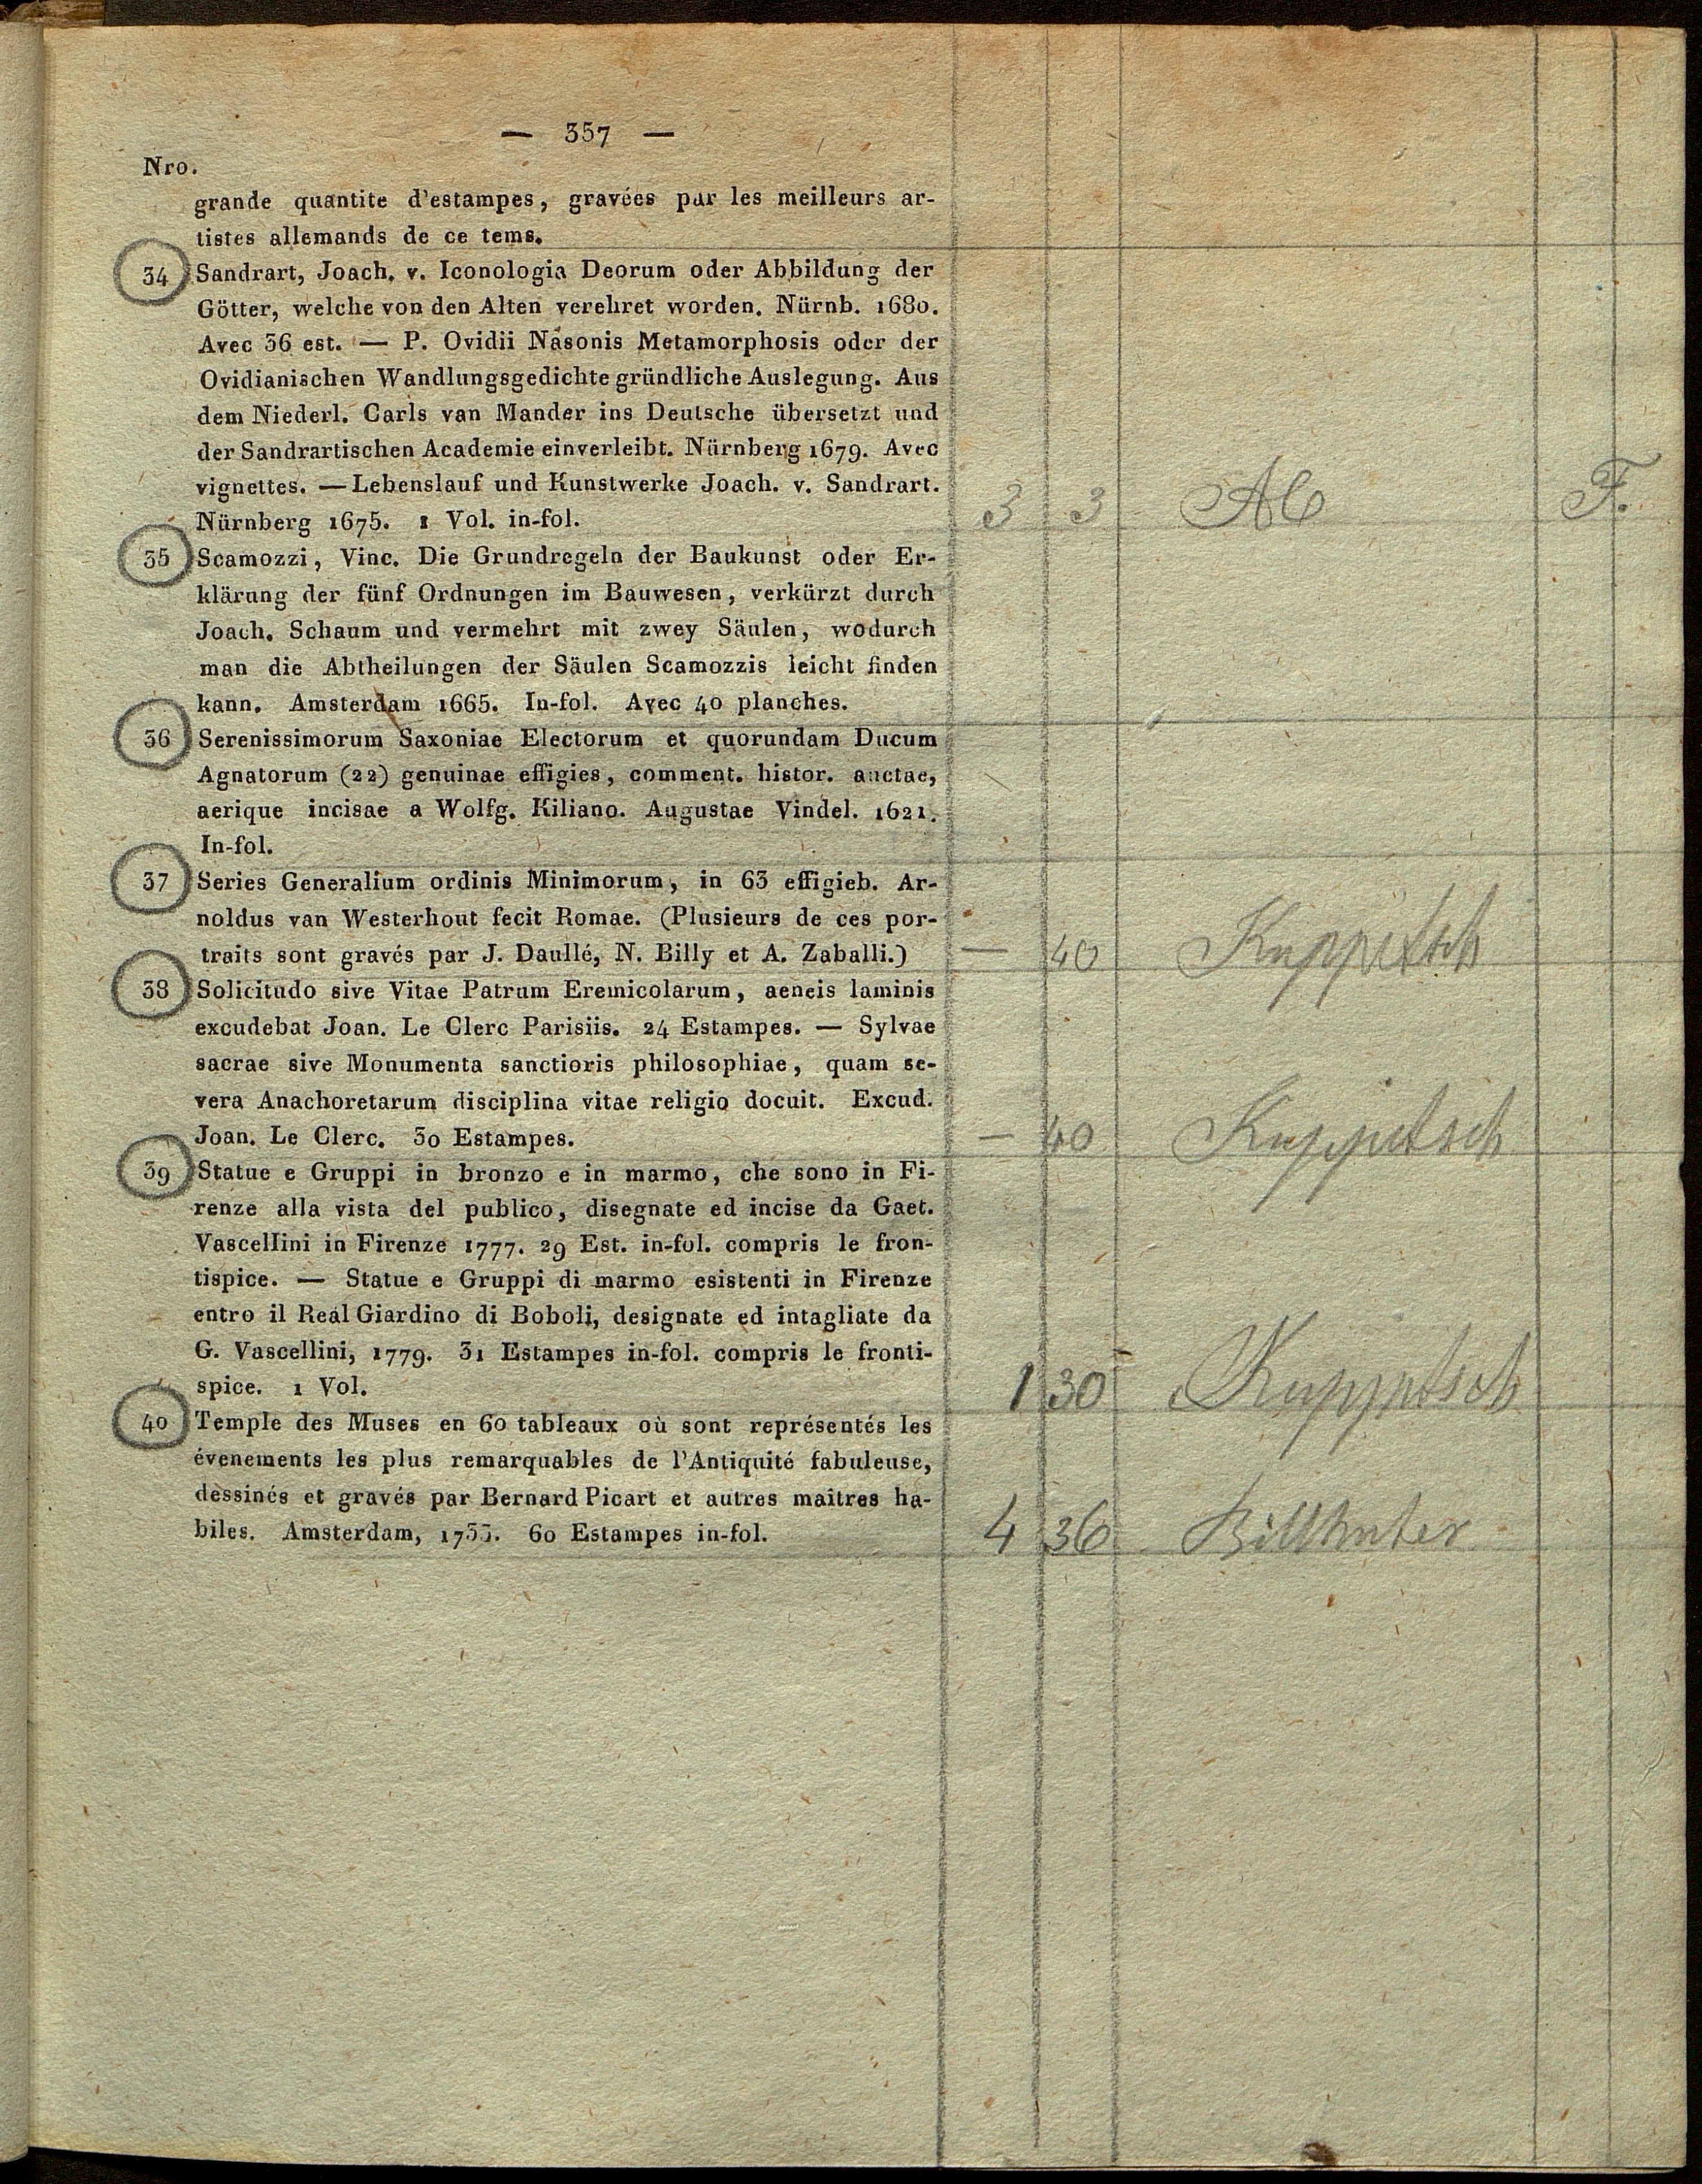 — 357 —
Nro.
grande quantite d'estampes, gravées par les meilleurs ar-
tistes allemands de ce tems.
34 Sandrart, Joach. v. Iconologia Deorum oder Abbildung der
Götter, welche von den Alten verehret worden. Nürnb. 1680.
Avec 36 est. — P. Ovidii Nasonis Metamorphosis oder der
Ovidianischen Wandlungsgedichte gründliche Auslegung. Aus
dem Niederl. Carls van Mander ins Deutsche übersetzt und
der Sandrartischen Academie einverleibt. Nürnberg 1679. Avec
vignettes. — Lebenslauf und Kunstwerke Joach. v. Sandrart.
Nürnberg 1675. 1 Vol. in-fol. 3 3 F.
35 Scamozzi, Vinc. Die Grundregeln der Baukunst oder Er-
klärung der fünf Ordnungen im Bauwesen, verkürzt durch
Joach. Schaum und vermehrt mit zwey Säulen, wodurch
man die Abtheilungen der Säulen Scamozzis leicht finden
kann. Amsterdam 1665. In-fol. Avec 40 planches.
36 Serenissimorum Saxoniae Electorum et quorundam Ducum
Agnatorum (22) genuinae effigies, comment. histor. auctae,
aerique incisae a Wolfg. Kiliano. Augustae Vindel. 1621.
In-fol.
37 Series Generalium ordinis Minimorum, in 63 effigieb. Ar-
noldus van Westerhout fecit Romae. (Plusieurs de ces por-
traits sont gravés par J. Daullé, N. Billy et A. Zaballi.) — 40 Kuppitsch
38 Solicitudo sive Vitae Patrum Eremicolarum, aeneis laminis
excudebat Joan. Le Clerc Parisiis. 24 Estampes. — Sylvae
sacrae sive Monumenta sanctioris philosophiae, quam se-
vera Anachoretarum disciplina vitae religio docuit. Excud.
Joan. Le Clerc. 30 Estampes. — 40 Kuppitsch
39 Statue e Gruppi in bronzo e in marmo, che sono in Fi-
renze alla vista del publico, disegnate ed incise da Gaet.
Vascellini in Firenze 1777. 29 Est. in-fol. compris le fron-
tispice. — Statue e Gruppi di marmo esistenti in Firenze
entro il Real Giardino di Boboli, designate ed intagliate da
G. Vascellini, 1779. 31 Estampes in-fol. compris le fronti-
spice. 1 Vol. 1 30 Kuppitsch
40 Temple des Muses en 60 tableaux où sont représentés les
évenements les plus remarquables de l'Antiquité fabuleuse,
dessinés et gravés par Bernard Picart et autres maîtres ha-
biles. Amsterdam, 1733. 60 Estampes in-fol. 4 36